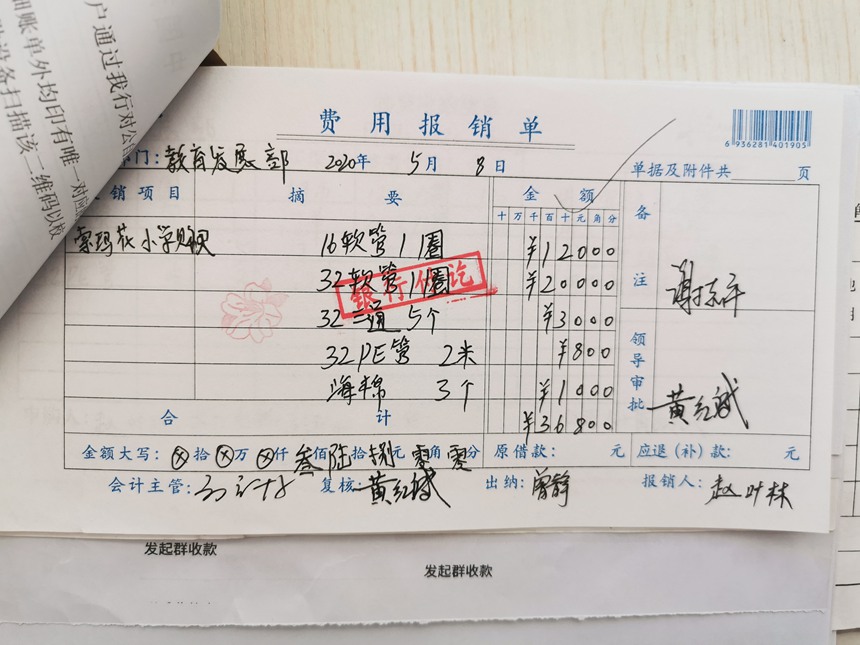 户通过我行对公
细账单外均印有唯一对
设备扫描该二维码以校
费用报销单
6 936281 401905
部门：教育发展部 2020年 5月 8日 单据及附件共 页
销项目 摘要 金额 备注
十万千百十元角分
索玛花小学购 16软管 1圈 ¥12000
32软管 1圈 ¥20000
银行付讫
32三通 5个 ¥3000
32PE管 2米 ¥800
海棉 3个 ¥1000
合计 ¥36800
谢
领导审批 黄红斌
金额大写：⊗拾⊗万⊗仟叁佰陆拾捌元零角零分 原借款： 元 应退（补）款： 元
会计主管： 复核：黄红斌 出纳：曾静 报销人：赵叶林
发起群收款
发起群收款